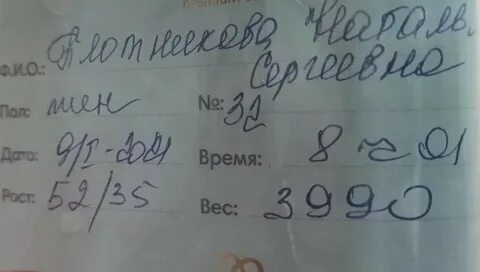 Ф.И.О.: Плотникова Наталь
Сергеевна
Пол: жен №: 32
Дата: 9/I-2021 Время: 8 ч 01
Рост: 52/35 Вес: 3990